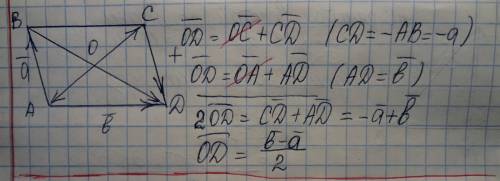 B C
O
a̅
A D
b̅
+ O̅D̅ = O̅C̅ + C̅D̅ (CD = -AB = -a)
O̅D̅ = O̅A̅ + A̅D̅ (AD = b̅)
2O̅D̅ = C̅D̅ + A̅D̅ = -a̅ + b̅
O̅D̅ = (b̅ - a̅)/2